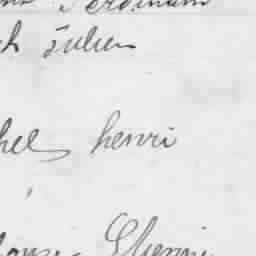 Ferdinand
ch Julien
hel henri
Etienne